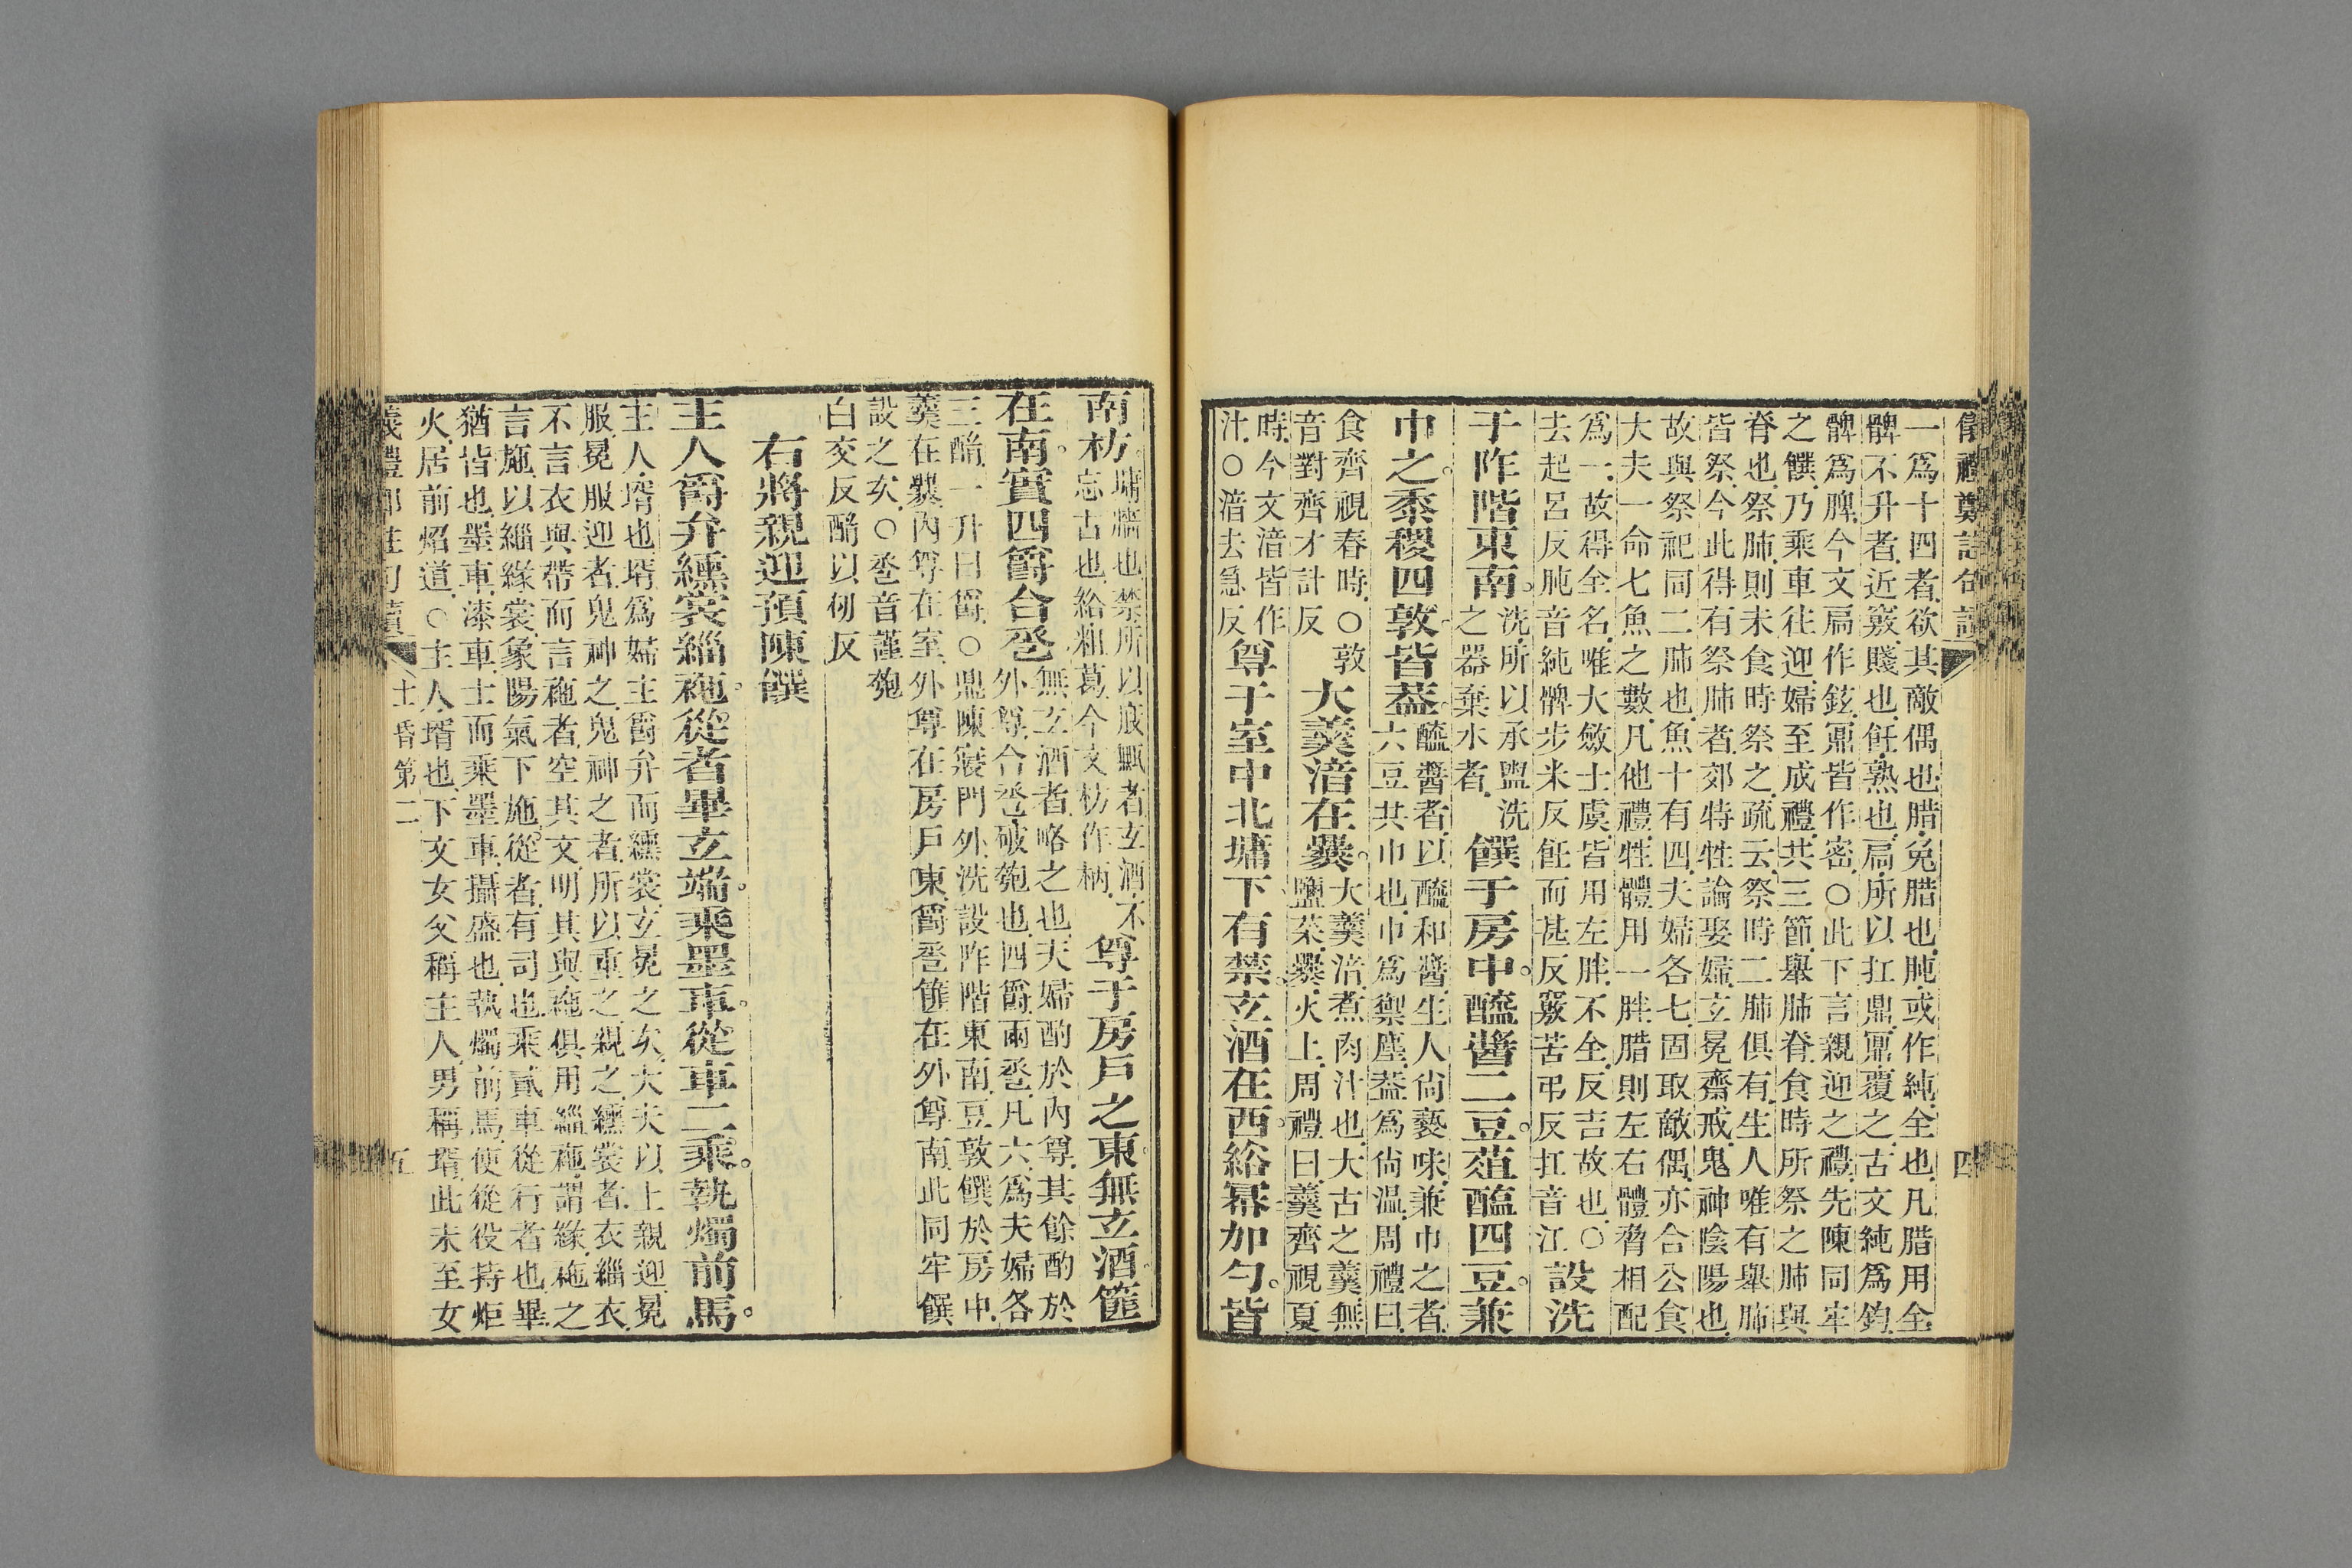 儀禮鄭註句讀
四
一爲十四者欲其敵偶也腊兔腊也肫或作純全也凡腊用全
髀不升者近竅賤也飪熟也扃所以扛鼎鼏覆之古文純爲鈞
髀爲脾今文扃作鉉鼏皆作密○此下言親迎之禮先陳同牢
之饌乃乘車往迎婦至成禮共三節舉肺脊食時所祭之肺與
脊也祭肺則未食時祭之疏云祭時二肺俱有生人唯有舉肺
皆祭今此得有祭肺者郊特牲論娶婦玄冕齋戒鬼神陰陽也
故與祭祀同二肺也魚十有四夫婦各七固取敵偶亦合公食
大夫一命七魚之數凡他禮牲體用一胖腊則左右體脅相配
爲一故得全名唯大斂士虞皆用左胖不全反吉故也○
去起呂反肫音純髀步米反飪而甚反竅苦弔反扛音江
設洗
于阼階東南
洗所以承盥洗
之器棄水者
饌于房中醯醬二豆菹醢四豆兼
巾之黍稷四敦皆蓋
醯醬者以醯和醬生人尙褻味兼巾之者
六豆共巾也巾爲禦塵蓋爲尙温周禮曰
食齊視春時○敦
音對齊才計反
大羹湆在爨
大羹湆煮肉汁也大古之羹無
鹽菜爨火上周禮曰羹齊視夏
時今文湆皆作
汁○湆去急反
尊于室中北墉下有禁玄酒在西綌幂加勺皆
南枋
墉牆也禁所以庪甒者玄酒不
忘古也綌粗葛今文枋作柄
尊于房戶之東無玄酒篚
在南實四爵合巹
無玄酒者略之也夫婦酌於內尊其餘酌於
外尊合巹破匏也四爵兩巹凡六爲夫婦各
三酳一升曰爵○鼎陳寢門外洗設阼階東南豆敦饌於房中
羹在爨內尊在室外尊在房戶東爵巹篚在外尊南此同牢饌
設之次○巹音謹匏
白交反酳以刃反
右將親迎預陳饌
主人爵弁纁裳緇袘從者畢玄端乘墨車從車二乘執燭前馬
主人壻也壻爲婦主爵弁而纁裳玄冕之次大夫以上親迎冕
服冕服迎者鬼神之鬼神之者所以重之親之纁裳者衣緇衣
不言衣與帶而言袘者空其文明其與袘俱用緇袘謂緣袘之
言施以緇緣裳象陽氣下施從者有司也乘貳車從行者也畢
猶皆也墨車漆車士而乘墨車攝盛也執燭前馬使從役持炬
火居前炤道○主人壻也下文女父稱主人男稱壻此未至女
士昏第二
五